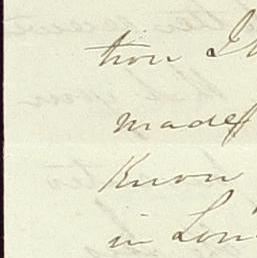 tion I
made
Know
in Lon